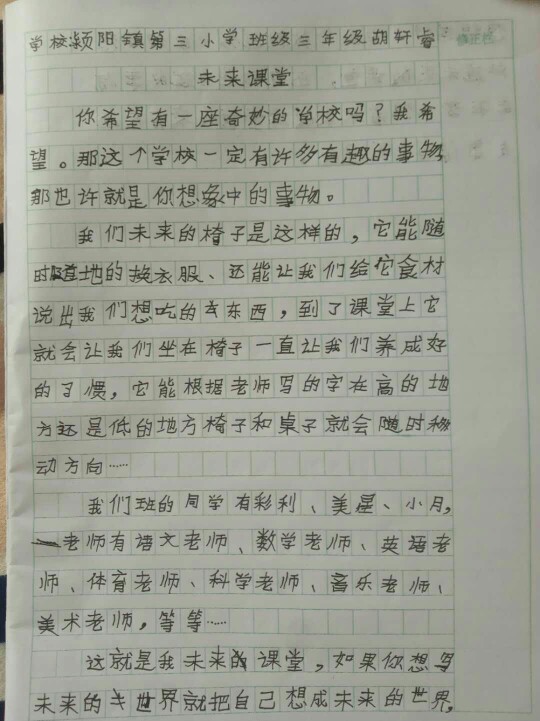 学校颍阳镇第三小学班级三年级胡轩睿
未来课堂
你希望有一座奇妙的学校吗？我希
望。那这个学校一定有许多有趣的事物
那也许就是你想象中的事物。
我们未来的椅子是这样的，它能随
时随地的换衣服、还能让我们给它食材
说出我们想吃的东西，到了课堂上它
就会让我们坐在椅子一直让我们养成好
的习惯，它能根据老师写的字在高的地
方还是低的地方椅子和桌子就会随时移
动方向……
我们班的同学有彩利、美星、小月，
老师有语文老师、数学老师、英语老
师、体育老师、科学老师、音乐老师、
美术老师，等等……
这就是我未来的课堂，如果你想写
未来的世界就把自己想成未来的世界，